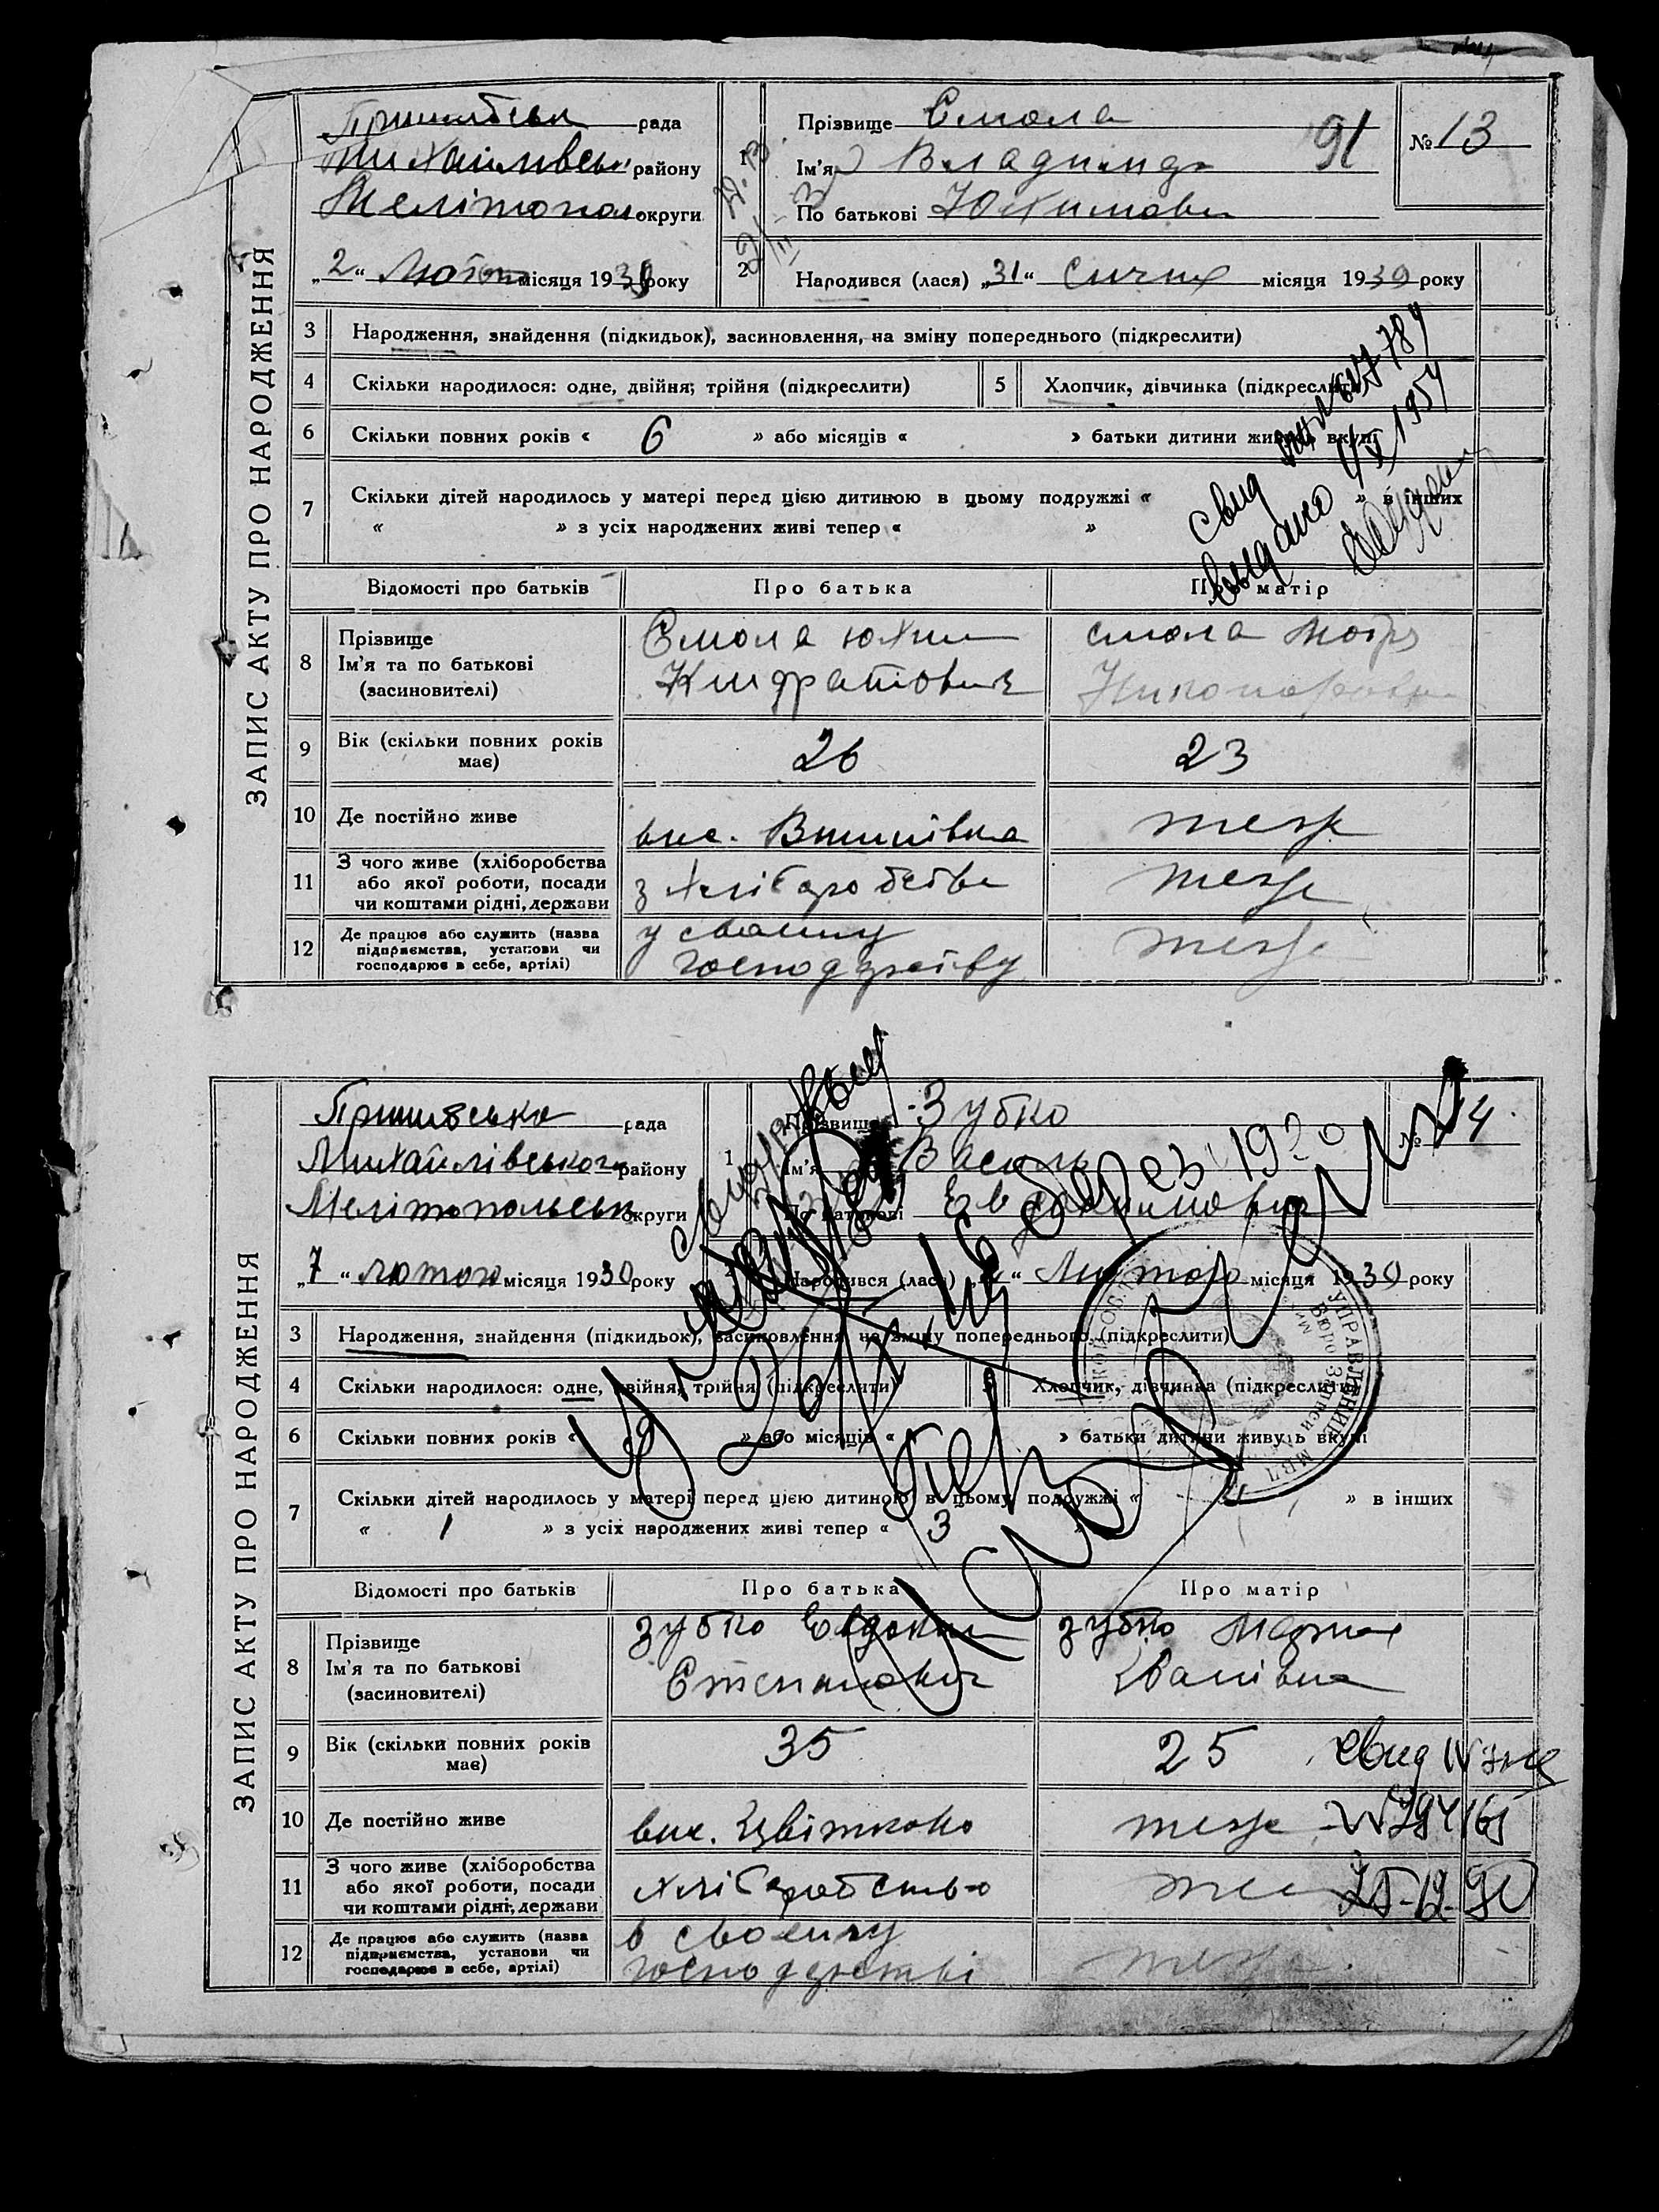 ЗАПИС АКТУ ПРО НАРОДЖЕННЯ
рада
Прізвище Смола 91 № 13
району
1 Ім'я Владимир
Мелітопол округи
По батькові Юхимови
„2“ місяця 1930 року
2 Народився (лася) „31“ Січня місяця 1930 року
3 Народження, знайдення (підкидьок), засиновлення, на зміну попереднього (підкреслити)
4 Скільки народилося: одне, двійня; трійня (підкреслити) 5 Хлопчик, дівчинка (підкреслити)
6 Скільки повних років « 6 » або місяців « » батьки дитини живуть вкупі
7 Скільки дітей народилось у матері перед цією дитиною в цьому подружжі « » в інших
« » з усіх народжених живі тепер « »
свид
выдано 1954
Відомості про батьків Про батька Про матір
8 Прізвище
Ім'я та по батькові
(засиновителі)
Смола Юхим
Кіндратович
смола Мотря
Никонорівна
9 Вік (скільки повних років
має)
26 23
10 Де постійно живе
вис. теж
11 З чого живе (хліборобства
або якої роботи, посади
чи коштами рідні, держави
з хліборобства теж
12 Де працює або служить (назва
підприємства, установи чи
господарює в себе, артілі)
у своєму
господарству
теж
ЗАПИС АКТУ ПРО НАРОДЖЕННЯ
рада
Прізвище Зубко № 14
Михайлівського району
1 Ім'я Василь
Мелітопольськ округи
По батькові Евдокимович
„7“ лютого місяця 1930 року
Народився (лася) Лютого місяця 1930 року
3 Народження, знайдення (підкидьок), засиновлення, на зміну попереднього (підкреслити)
4 Скільки народилося: одне, двійня, трійня (підкреслити) 5 Хлопчик, дівчинка (підкреслити)
6 Скільки повних років « » або місяців « » батьки дитини живуть вкупі
7 Скільки дітей народилось у матері перед цією дитиною в цьому подружжі « » в інших
« 1 » з усіх народжених живі тепер « 3 »
16 берез 1930
УПРАВЛІННЯ
Бюро Записи
МВД
Відомості про батьків Про батька Про матір
8 Прізвище
Ім'я та по батькові
(засиновителі)
зубко Евдоким
Степанович
зубко Мария
Іванівна
9 Вік (скільки повних років
має)
35 25
свид
10 Де постійно живе
вис. Цвіткова теж
11 З чого живе (хліборобства
або якої роботи, посади
чи коштами рідні, держави
хліборобство
12 Де працює або служить (назва
підприємства, установи чи
господарює в себе, артілі)
в своєму
господарстві
теж